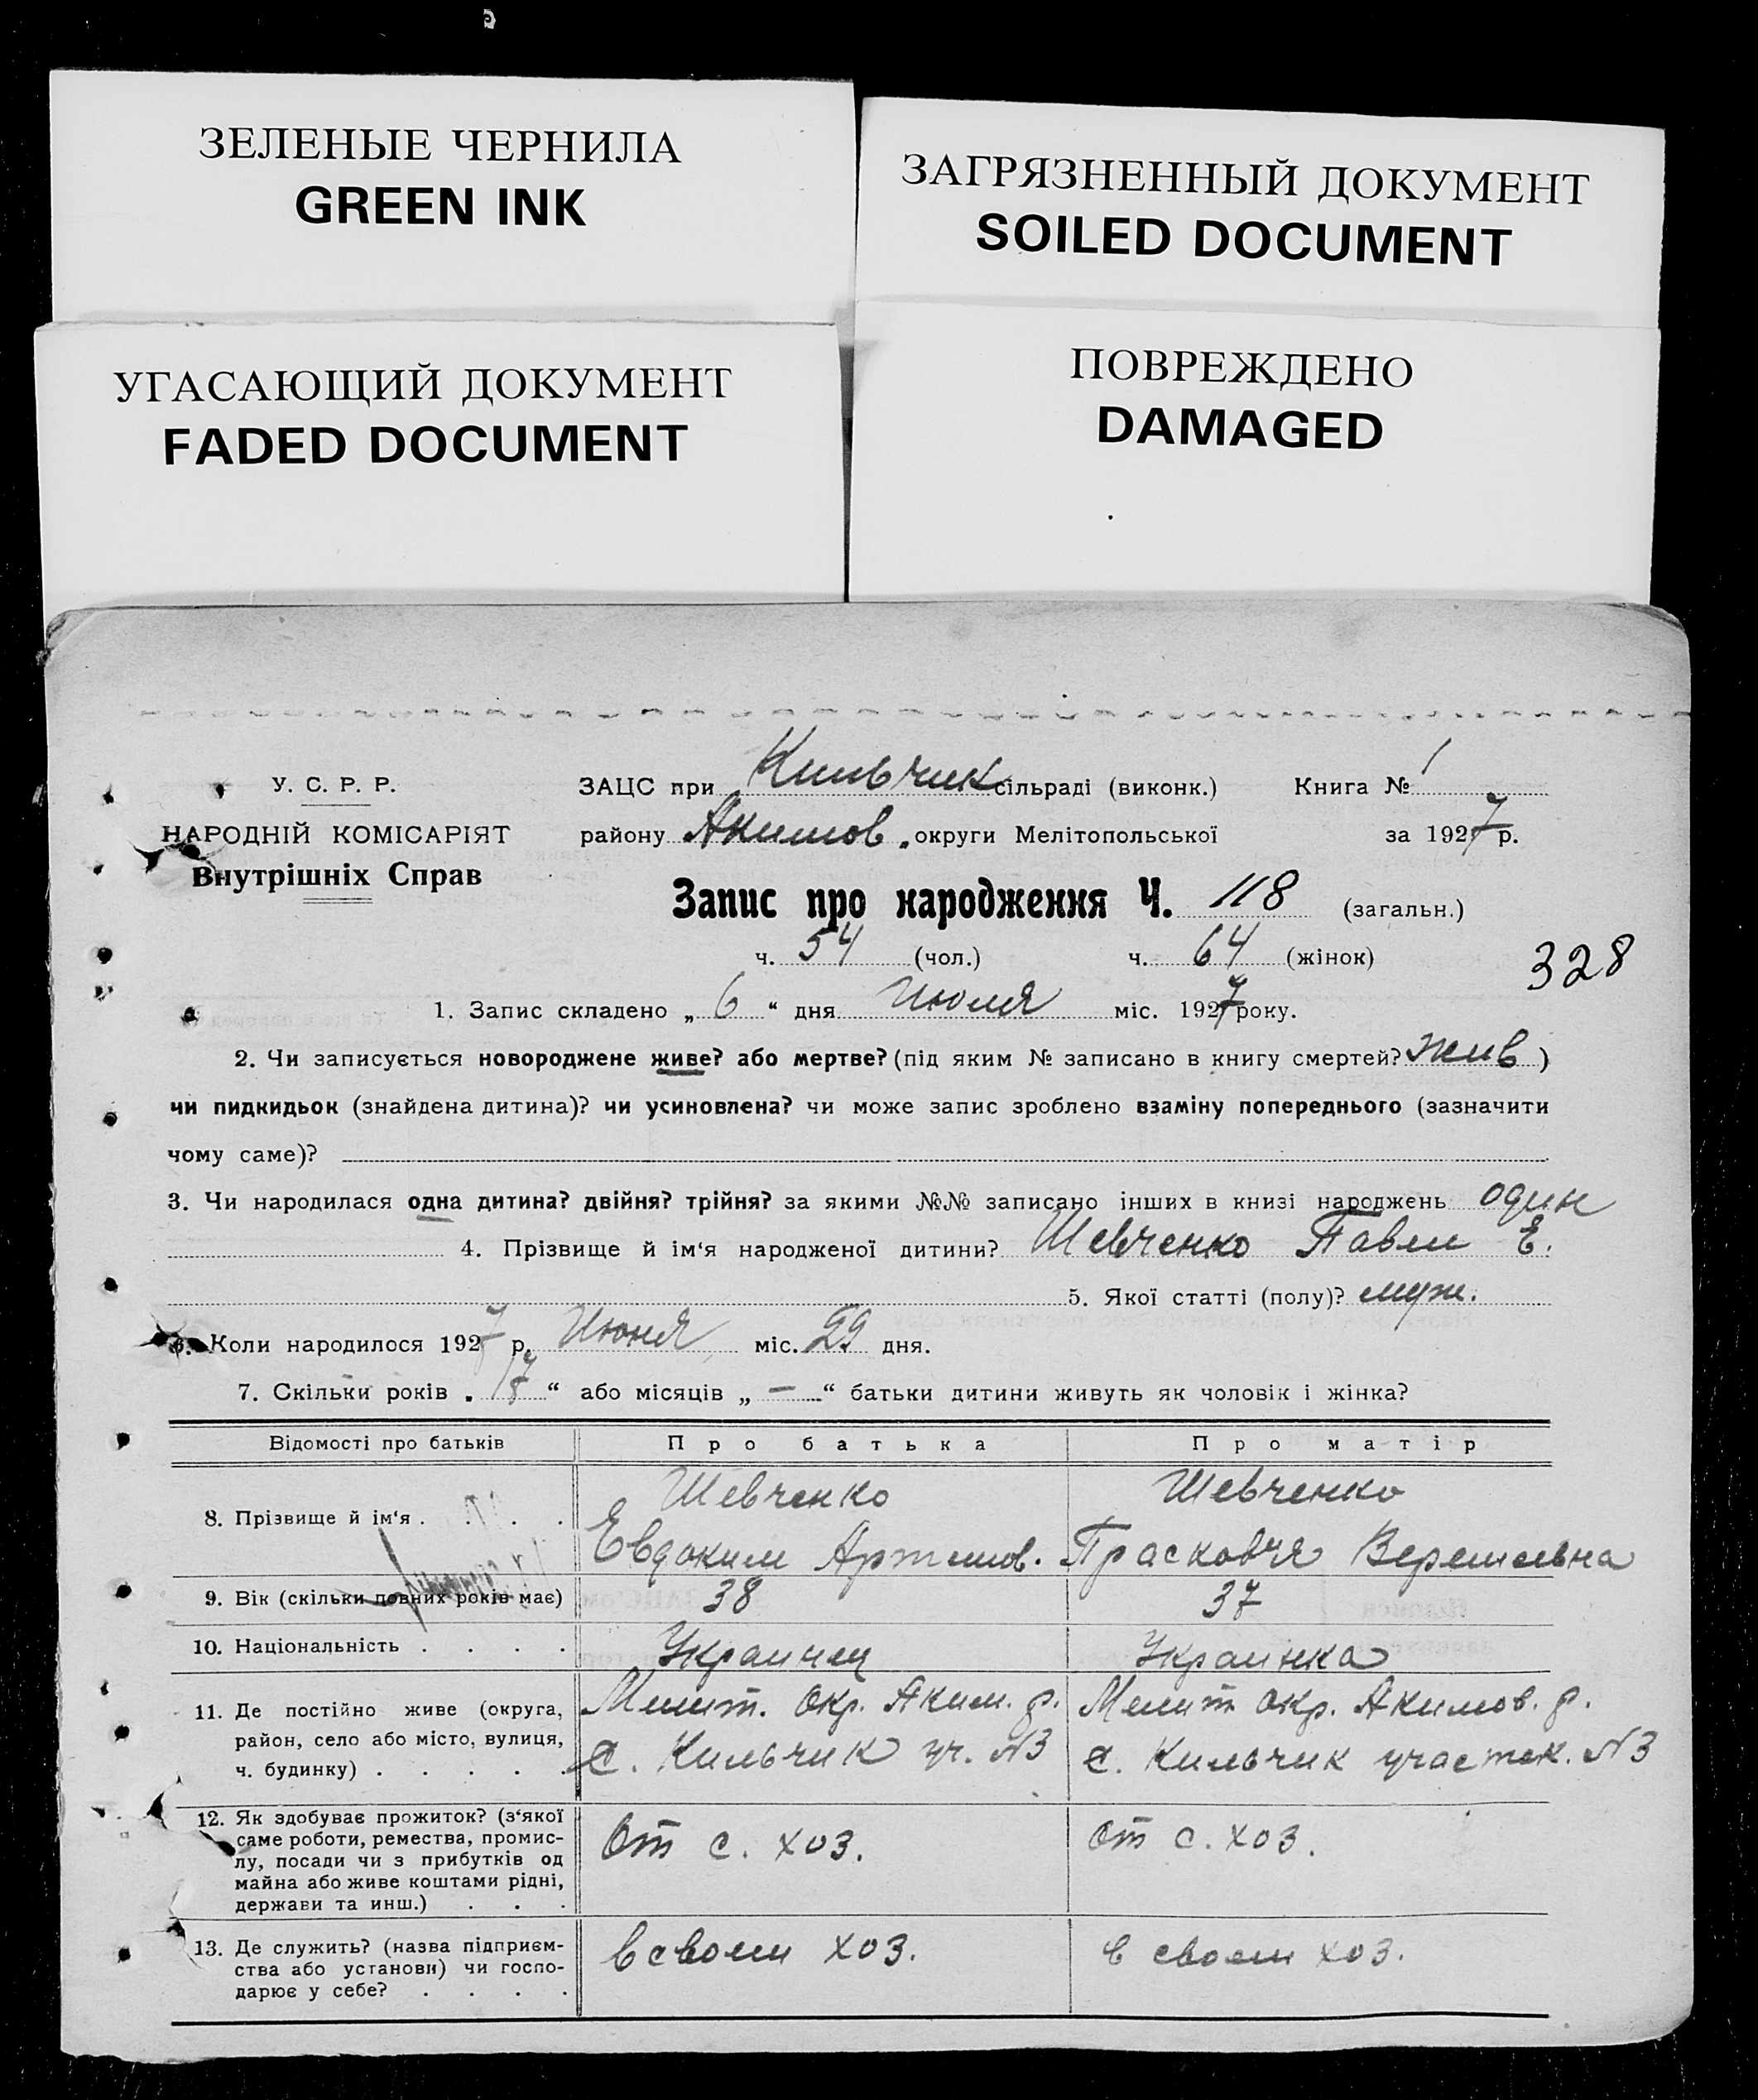 ЗЕЛЕНЫЕ ЧЕРНИЛА
GREEN INK
ЗАГРЯЗНЕННЫЙ ДОКУМЕНТ
SOILED DOCUMENT
УГАСАЮЩИЙ ДОКУМЕНТ
FADED DOCUMENT
ПОВРЕЖДЕНО
DAMAGED
У. С. Р. Р.
НАРОДНІЙ КОМІСАРІЯТ
Внутрішніх Справ
ЗАЦС при Кильчик сільраді (виконк.) Книга № 1
району Акимов. округи Мелітопольської за 1927 р.
Запис про народження Ч. 118 (загальн.)
ч. 54 (чол.) ч. 64 (жінок)
328
1. Запис складено „ 6 “ дня Июля міс. 1927 року.
2. Чи записується новороджене живе? або мертве? (під яким № записано в книгу смертей? жив )
чи пидкидьок (знайдена дитина)? чи усиновлена? чи може запис зроблено взаміну попереднього (зазначити
чому саме)?
3. Чи народилася одна дитина? двійня? трійня? за якими №№ записано інших в книзі народжень один
4. Прізвище й ім‘я народженої дитини? Шевченко Павел Е.
5. Якої статті (полу)? муж.
6. Коли народилося 1927 р. Июня міс. 29 дня.
7. Скільки років „ 17 “ або місяців „ — “ батьки дитини живуть як чоловік і жінка?
Відомості про батьків Про батька Про матір
8. Прізвище й ім‘я . . . . Шевченко Шевченко
Евдоким Артемов. Прасковья
9. Вік (скільки повних років має) 38 37
10. Національність . . . . Украинец Украинка
11. Де постійно живе (округа, Мелит. окр. Аким. р. Мелит окр. Акимов. р.
район, село або місто, вулиця, с. Кильчик уч. №3 с. Кильчик участок. №3
ч. будинку) . . . . .
12. Як здобуває прожиток? (з‘якої
саме роботи, ремества, промис- От с. хоз. От с. хоз.
лу, посади чи з прибутків од
майна або живе коштами рідні,
держави та инш.) . . .
13. Де служить? (назва підприєм- в своем хоз. в своем хоз.
ства або установи) чи госпо-
дарює у себе? . . . .